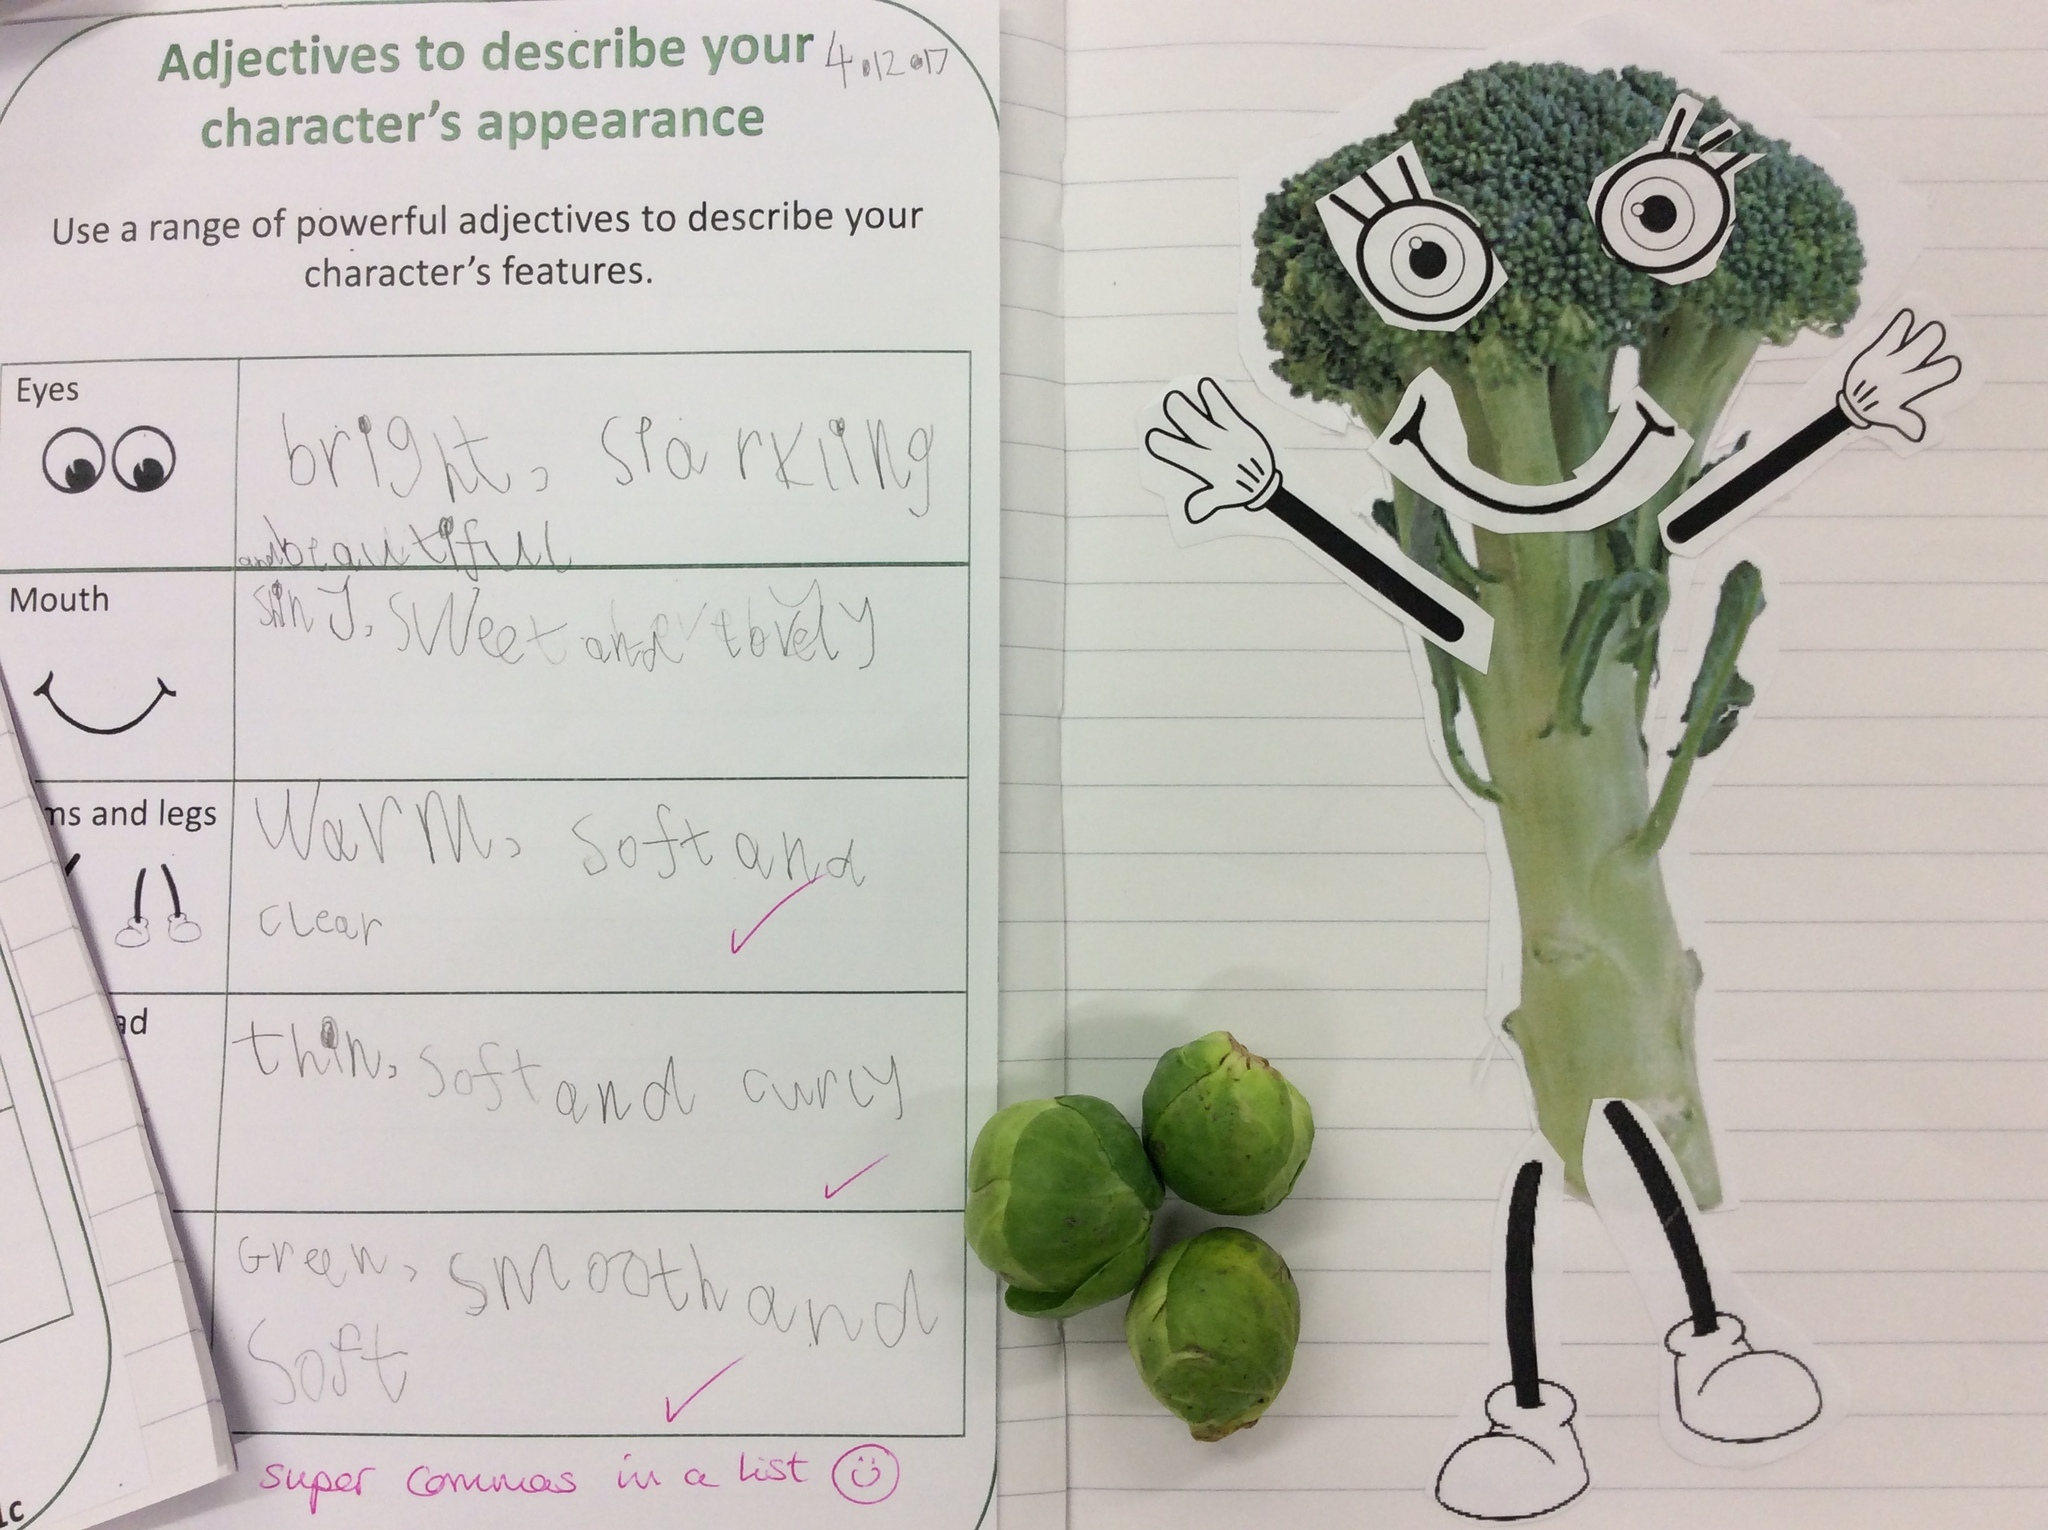 Adjectives to describe your
character's appearance
4.12.17
Use a range of powerful adjectives to describe your
character's features.
Eyes
bright, sparkiing
and beautiful
Mouth
sweet and lovely
ms and legs
warm, soft and
clear
ad
thin, soft and curly
Green, smooth and
soft
super commas in a list
1c